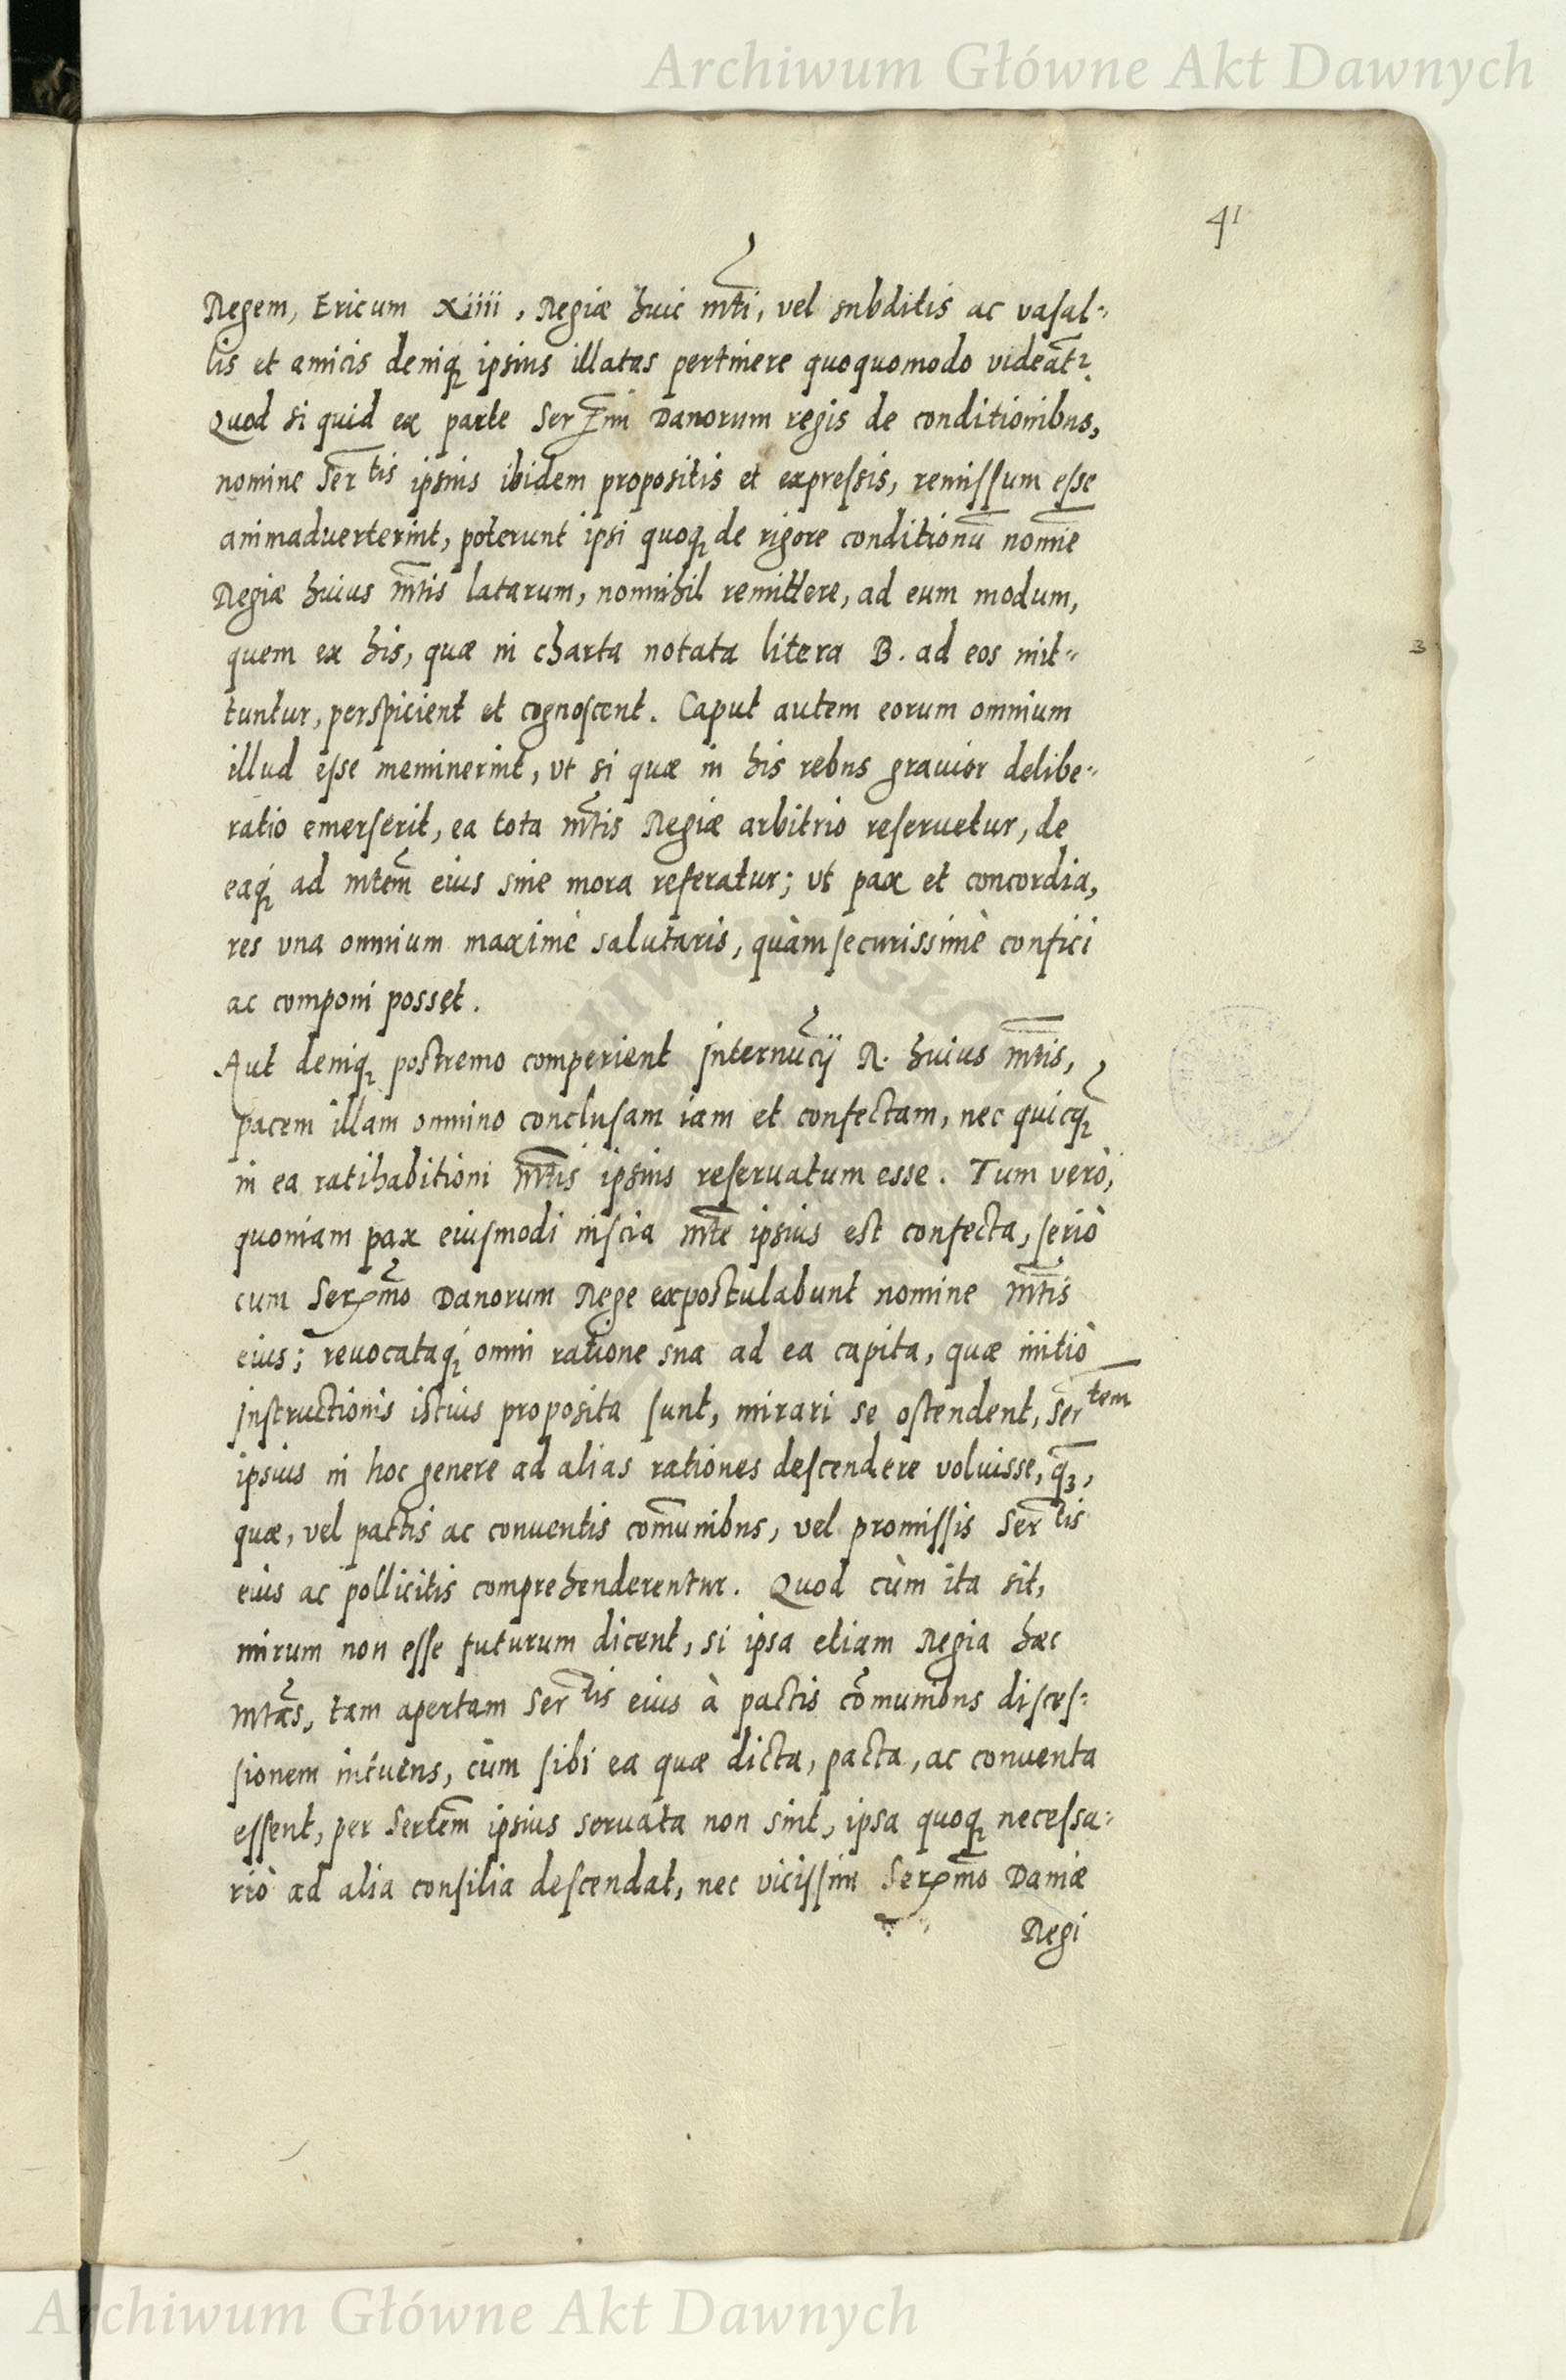 Archiwum Główne Akt Dawnych
41
Regem, Ericum XIIII, Regiæ huic mti, vel subditis ac vasal-
lis et amicis deniq; ipsius illatas pertinere quoquomodo videat̃.
Quod si quid ex parte Serᵐⁱ Danorum regis de conditionibus,
nomine Serᵗⁱˢ ipsius ibidem propositis et expressis, remissum esse
animaduerterint, poterunt ipsi quoq; de rigore conditionū nomīe
Regiæ huius mtis latarum, nonnihil remittere, ad eum modum,
quem ex his, quæ in charta notata litera B. ad eos mit-
tuntur, perspicient et cognoscent. Caput autem eorum omnium
illud esse meminerint, vt si quæ in his rebus grauior delibe-
ratio emerserit, ea tota mtis Regiæ arbitrio reseruetur, de
eaq; ad mtem eius sine mora referatur; vt pax et concordia,
res vna omnium maximè salutaris, quàm securissimè confici
ac componi posset.
Aut deniq; postremo comperient Internūcij R. huius mtis,
pacem illam omnino conclusam iam et confectam, nec quicq;
in ea ratihabitioni mtis ipsius reseruatum esse. Tum verò,
quoniam pax eiusmodi inscia mte ipsius est confecta, seriò
cum Serᵐᵒ Danorum Rege expostulabunt nomine mtis
eius; reuocataq; omni ratione sua ad ea capita, quæ initiò
Instructionis istius proposita sunt, mirari se ostendent, Serᵗᵉᵐ
ipsius in hoc genere ad alias rationes descendere voluisse, q̄ȝ,
quæ, vel pactis ac conuentis com̄unibus, vel promissis Serᵗⁱˢ
eius ac pollicitis comprehenderentur. Quod cùm ita sit,
mirum non esse futurum dicent, si ipsa etiam Regia hæc
Mtas, tam apertam Serᵗⁱˢ eius à pactis cōmunibus disces-
sionem intuens, cùm sibi ea quæ dicta, pacta, ac conuenta
essent, per Sertem ipsius seruata non sint, ipsa quoq; necessa-
riò ad alia consilia descendat, nec vicissim Serᵐᵒ Daniæ
Regi
Archiwum Główne Akt Dawnych